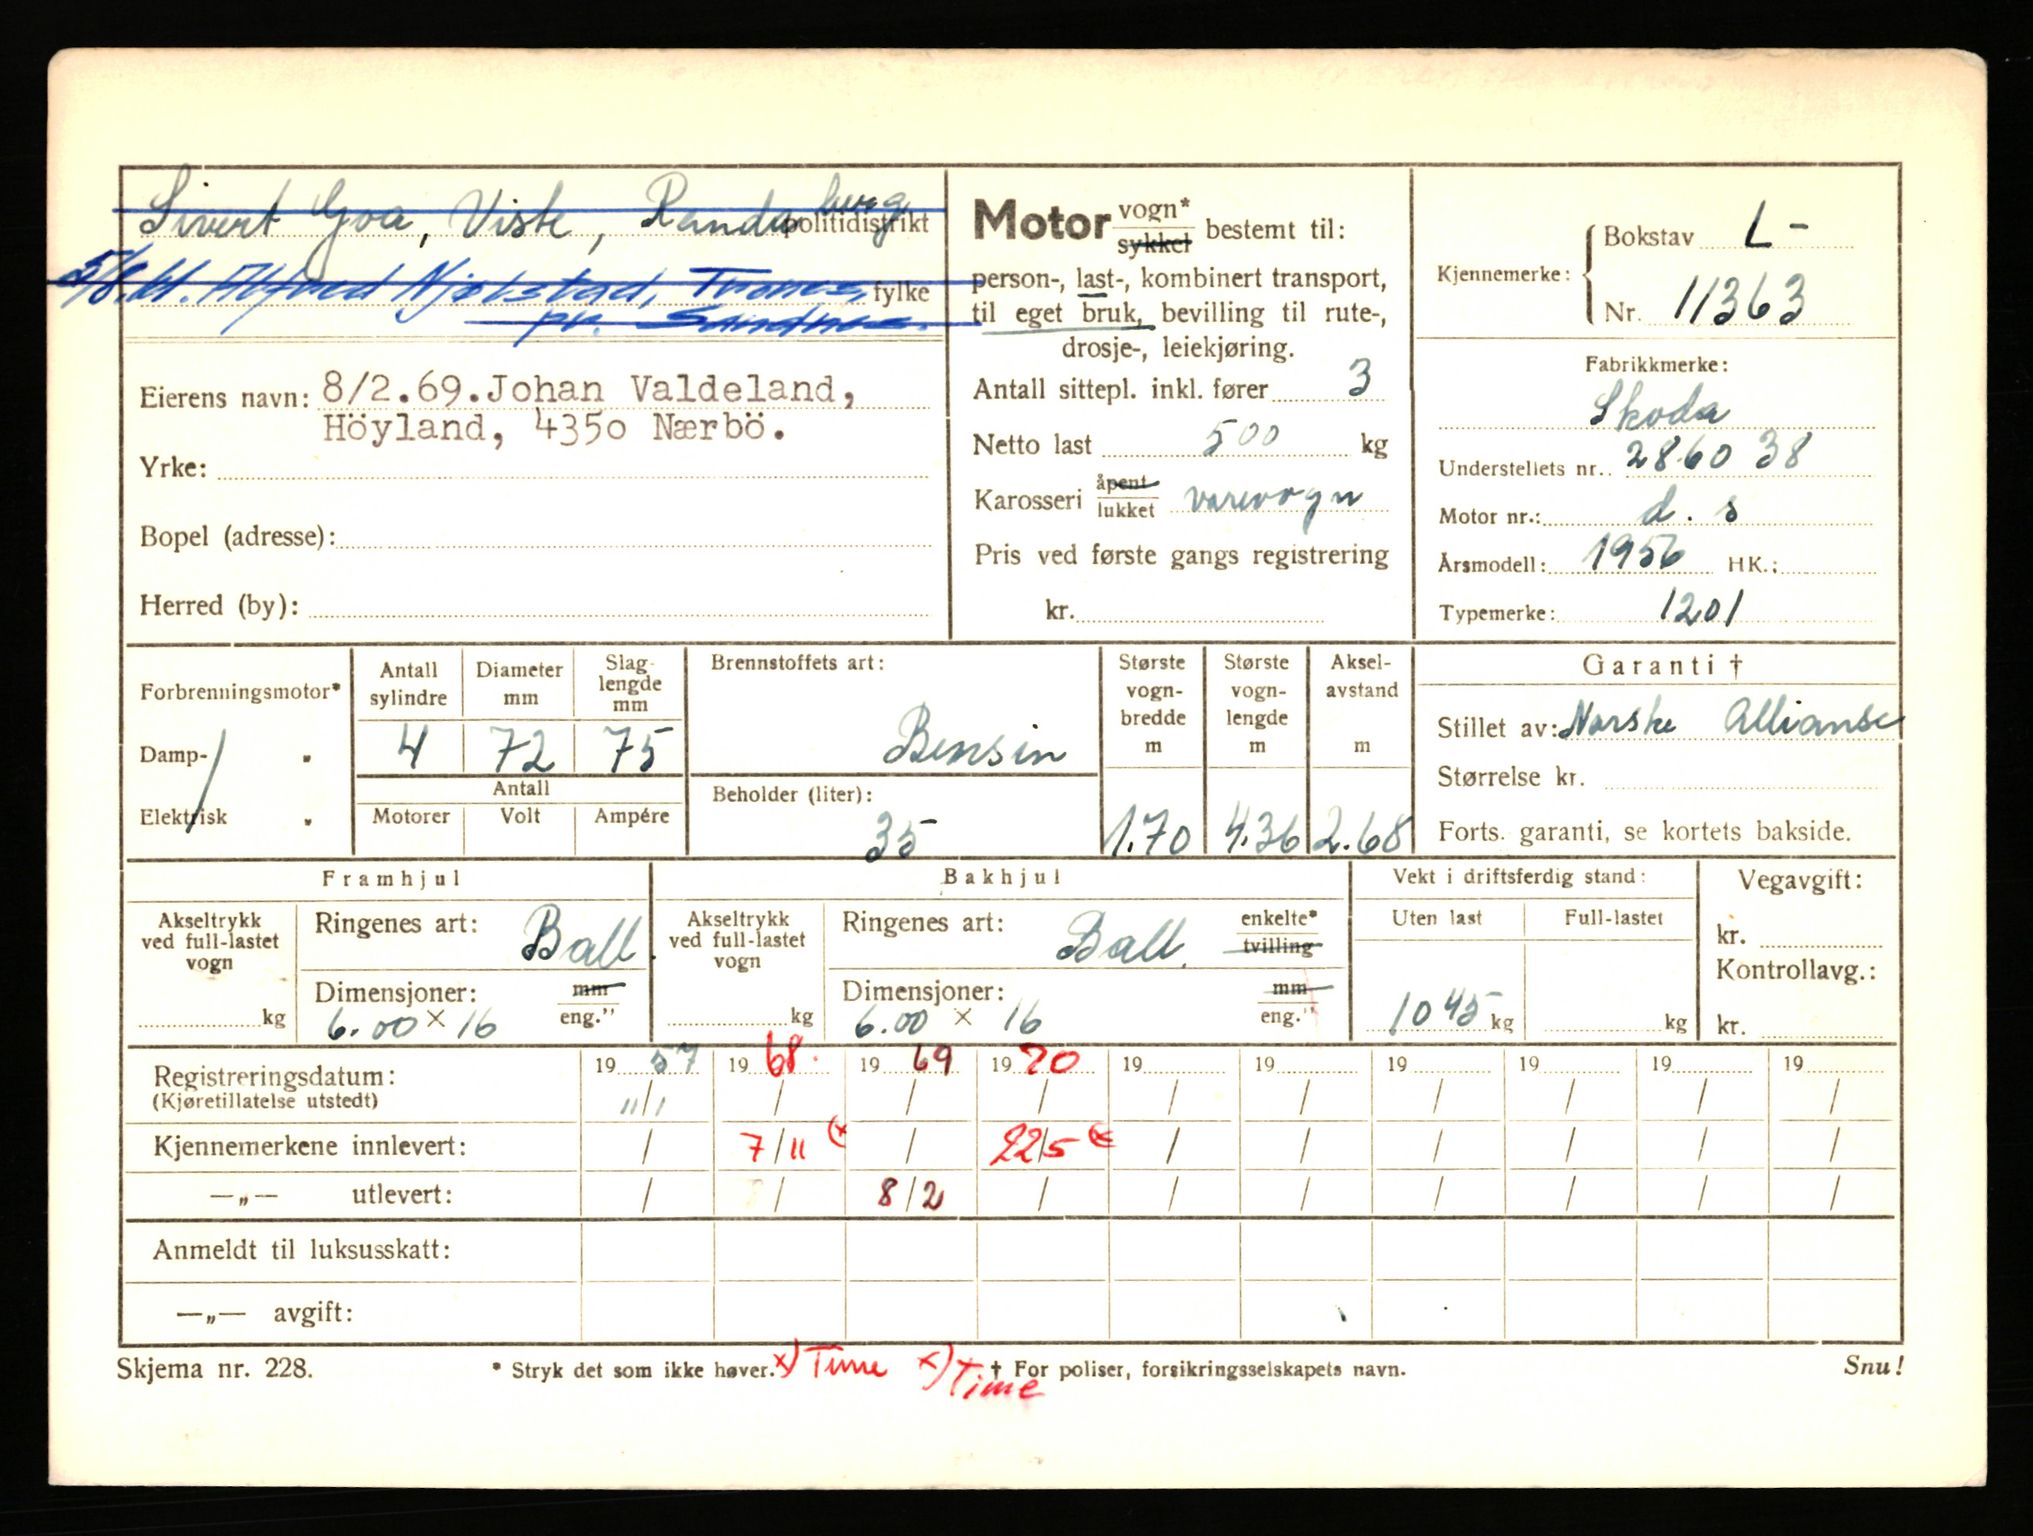 Sivert Goa, Viste, Randaberg
politidistrikt
Alfred Njølstad, Trones,
fylke
pr. Sandnes.
Eierens navn: 8/2.69. Johan Valdeland,
Höyland, 4350 Nærbö.
Yrke:
Bopel (adresse):
Herred (by):
Motor vogn* sykkel bestemt til:
person-, last-, kombinert transport,
til eget bruk, bevilling til rute-,
drosje-, leiekjøring.
Antall sittepl. inkl. fører 3
Netto last 500 kg
Karosseri åpent lukket varevogn
Pris ved første gangs registrering
kr.
Kjennemerke: Bokstav L -
Nr. 11363
Fabrikkmerke:
Skoda
Understellets nr.. 286038
Motor nr.: d. s
Årsmodell: 1956 HK.:
Typemerke: 1201
Forbrenningsmotor*
Damp- "
Elektrisk "
Antall sylindre 4
Diameter mm 72
Slaglengde mm 75
Antall
Motorer Volt Ampére
Brennstoffets art:
Bensin
Beholder (liter):
35
Største vognbredde m 1.70
Største vognlengde m 4.36
Akselavstand m 2.68
Garanti †
Stillet av: Norske Allianse
Størrelse kr.
Forts. garanti, se kortets bakside.
Framhjul
Akseltrykk ved full-lastet vogn
kg
Ringenes art: Ball.
Dimensjoner: mm
6.00 x 16 eng."
Bakhjul
Akseltrykk ved full-lastet vogn
kg
Ringenes art: Ball. enkelte* tvilling
Dimensjoner: mm
6.00 x 16 eng."
Vekt i driftsferdig stand:
Uten last Full-lastet
1045 kg kg
Vegavgift:
kr.
Kontrollavg.:
kr.
Registreringsdatum: 1957 1968. 1969 1970 19 19 19 19 19 19
(Kjøretillatelse utstedt) 11/1 / / / / / / / / /
Kjennemerkene innlevert: / 7/11 (x / 22/5 (x / / / / / /
—„— utlevert: / / 8/2 / / / / / / /
Anmeldt til luksusskatt:
—„— avgift:
Skjema nr. 228.
* Stryk det som ikke høver. x) Time x) Time † For poliser, forsikringsselskapets navn.
Snu!